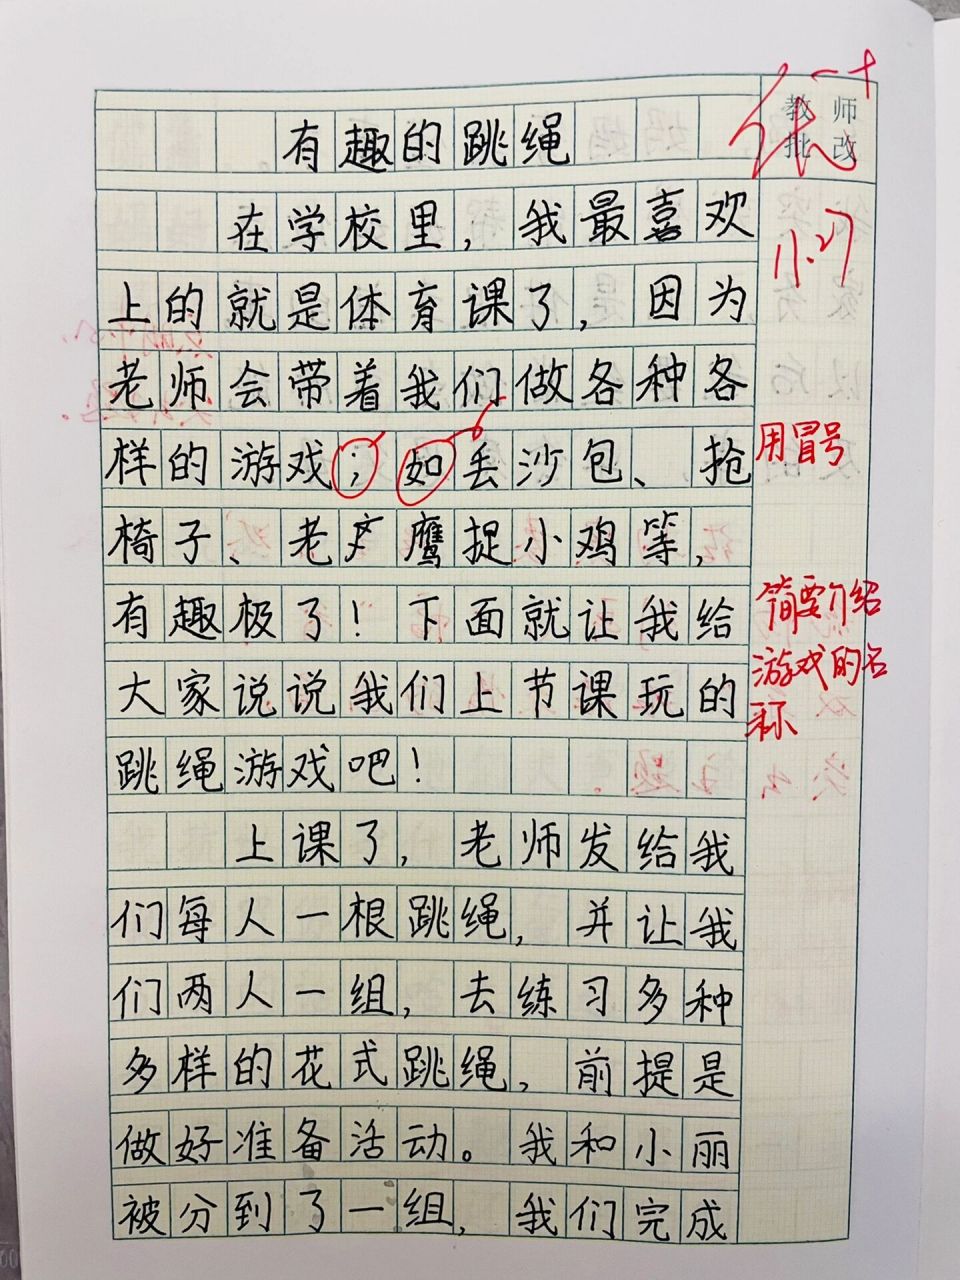 教师
批改
优-+
11.27
有趣的跳绳
在学校里，我最喜欢
上的就是体育课了，因为
老师会带着我们做各种各
样的游戏；如丢沙包、抢
用冒号
椅子、老鹰捉小鸡等，
有趣极了！下面就让我给
简要介绍
大家说说我们上节课玩的
游戏的名
称
跳绳游戏吧！
上课了，老师发给我
们每人一根跳绳，并让我
们两人一组，去练习多种
多样的花式跳绳，前提是
做好准备活动。我和小丽
被分到了一组，我们完成